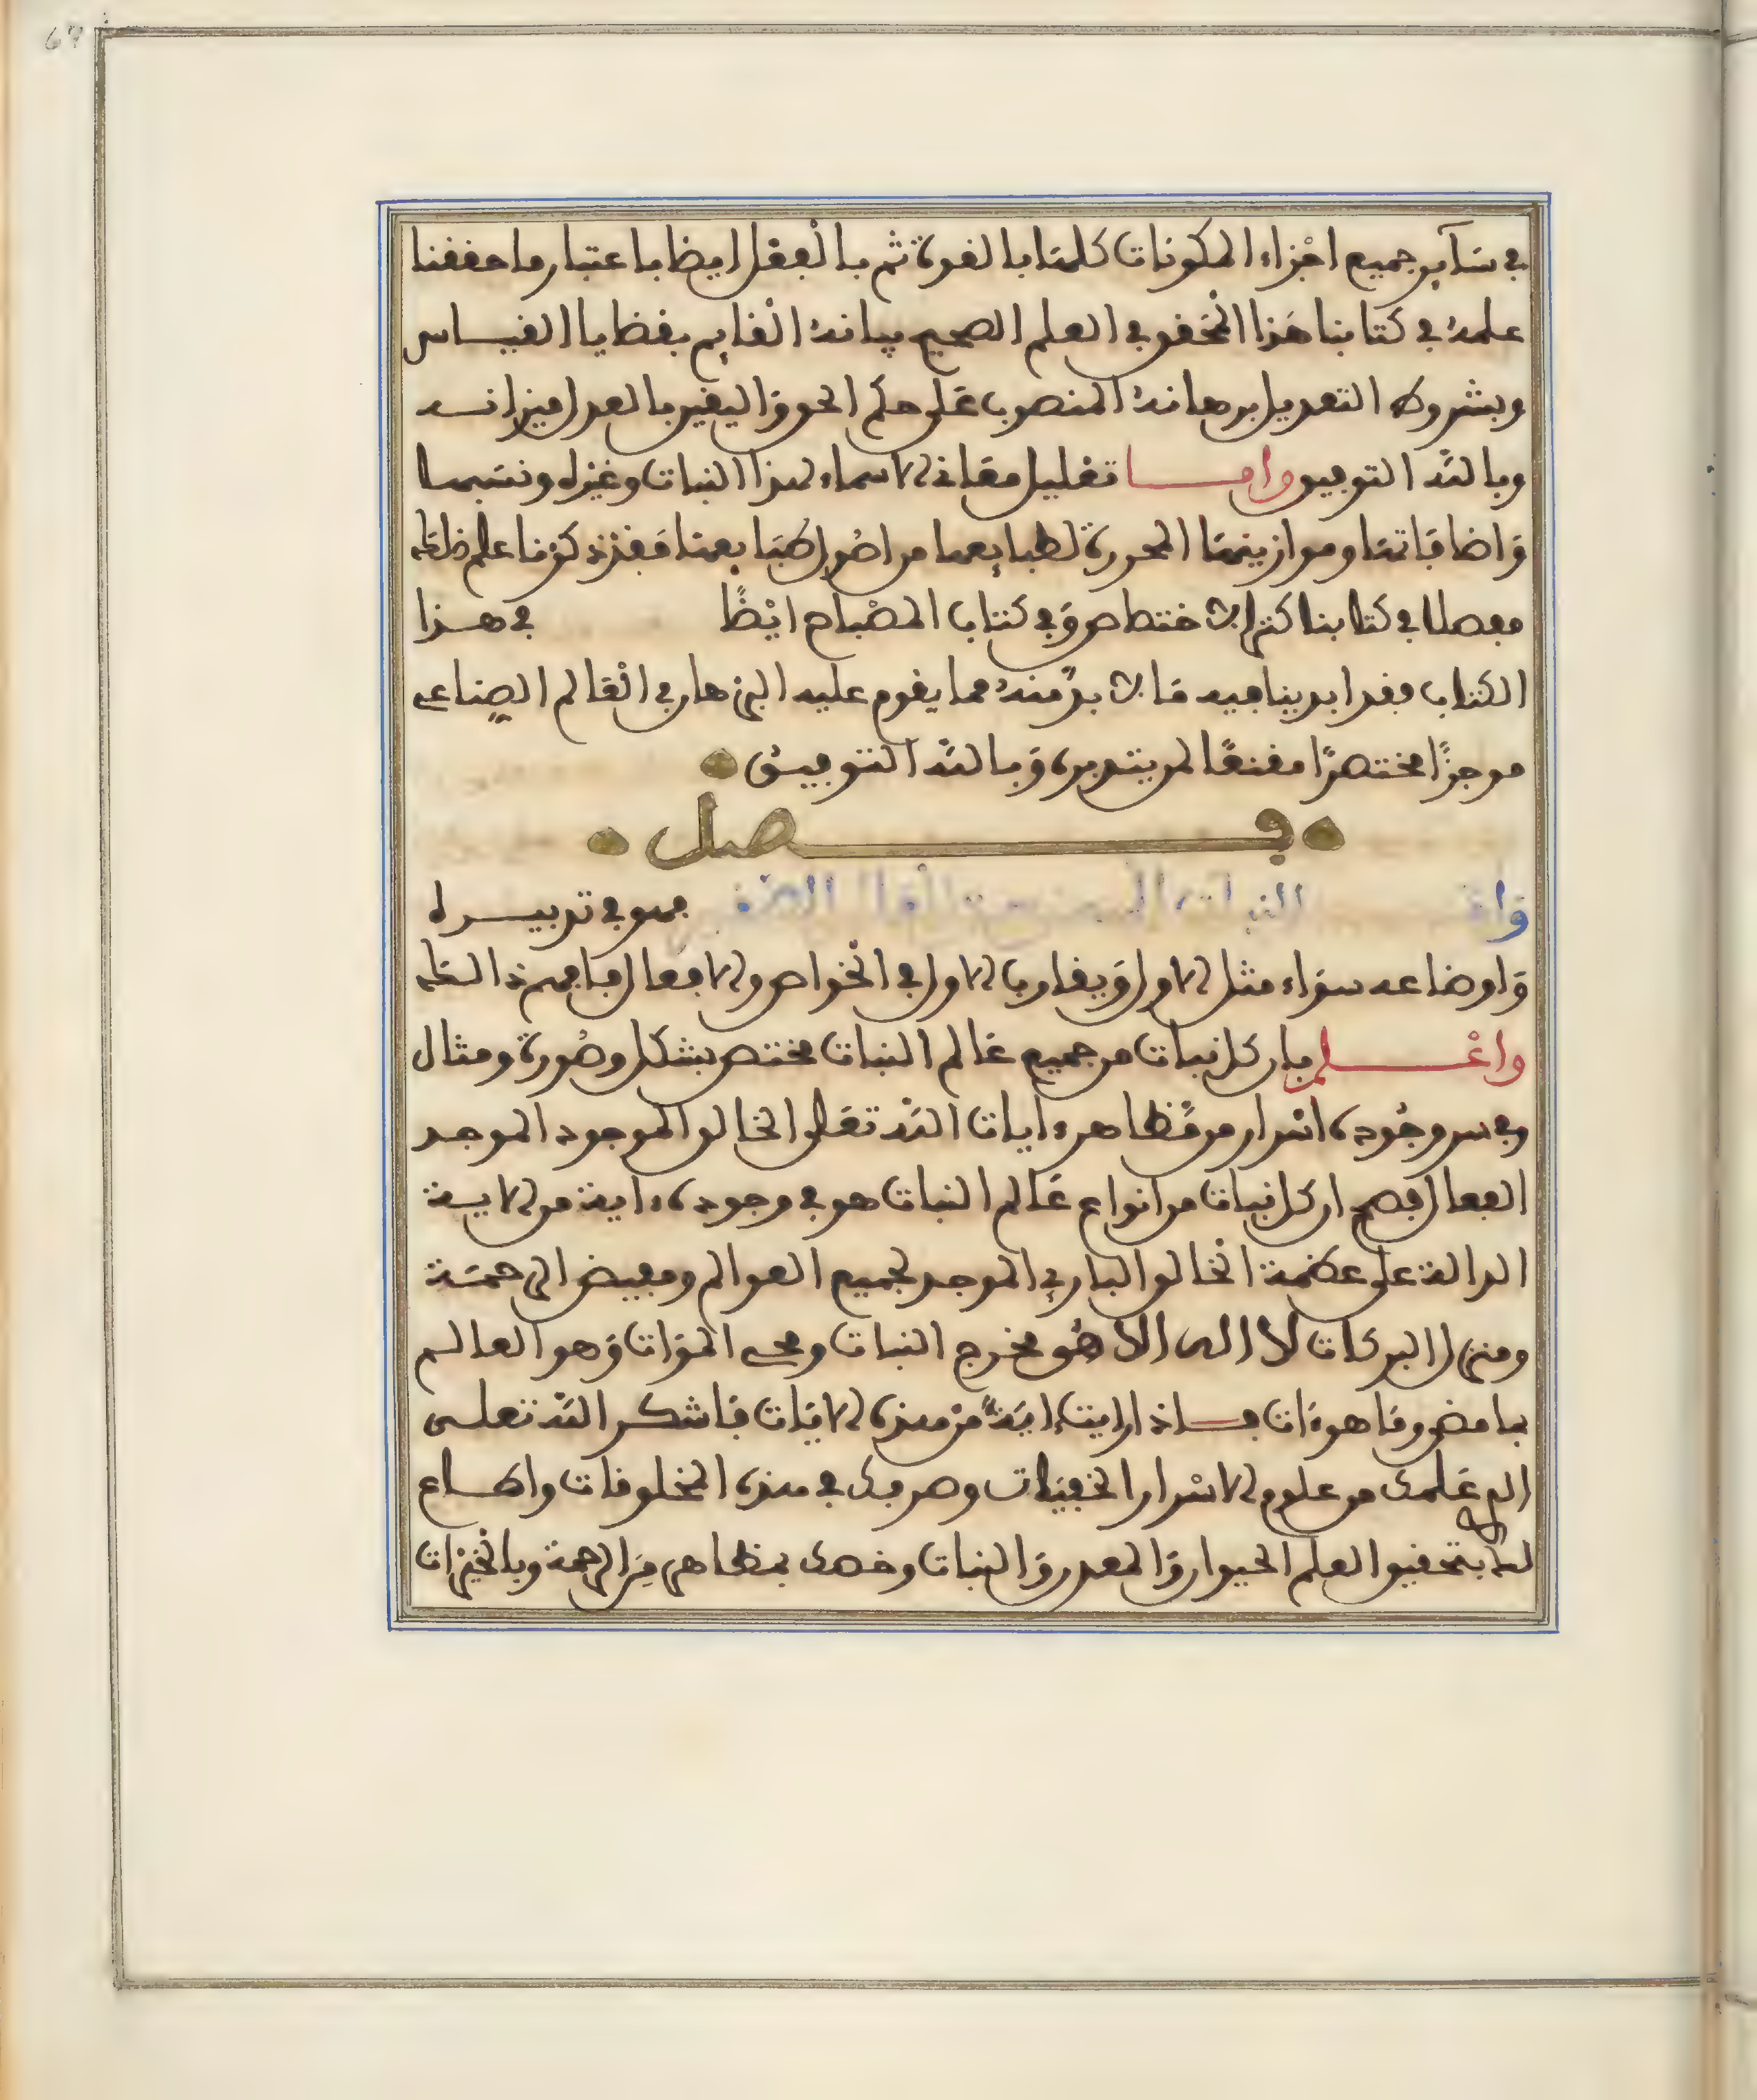 67
في سآير جميع اجزاء المكونات كلها بالقوة ثم بالعقل ايضا باعتبار ما حققنا
علمه في كتابنا هذا المحقق في العلم الصحيح بيانه القايم بقضايا القياس
وبشروط التعديل برهانه المنصوب على حكم الحق واليقين بالعدل ميزانه
وبالله التوفيق واما تفليل معاني الاسماء لهذا النبات وغيره ونسبها
واضافاتها وموازينها المحررة لطبايعها من اصول طبايعها فقد ذكرنا علم ذلك
مفصلا في كتابنا كنز الاختصاص وفي كتاب المصباح ايضًا في هذا
الكتاب فقد ابدينا فيه ما لا بد منه مما يقوم عليه البرهان في العالم الصناعي
موجزًا مختصرًا مقنعًا لمن يتدبره وبالله التوفيق
فصل
واما النبات فهو في تدبيره
واوضاعه سواء مثل الاول ويقارب الاول في الخواص والافعال فافهم ذلك
واعلم بان كل نبات من جميع عالم النبات مختص بشكل وصورة ومثال
وفي سر وجوده اسرار من مظاهر ءايات الله تعلى الخالق الموجود الموجد
الفعال فصح ان كل نبات من انواع عالم النبات هو في وجوده ءاية من الاية
الدالة على عظمة الخالق الباري الموجد لجميع العوالم ومفيض الرحمة
ومنزل البركات لا اله الا هو مخرج النبات ومحي الموات وهو العالم
بما مضى وما هو ءات فاذا رايت ءاية من هذه الايات فاشكر الله تعلى
الذي علمك من علوم الاسرار الخفيات وصرفك في هذه المخلوقات واطاع
لك بتحقيق العلم الحيوان والمعدن والنبات وخصك بمظاهر من الرحمة وبالخيرات